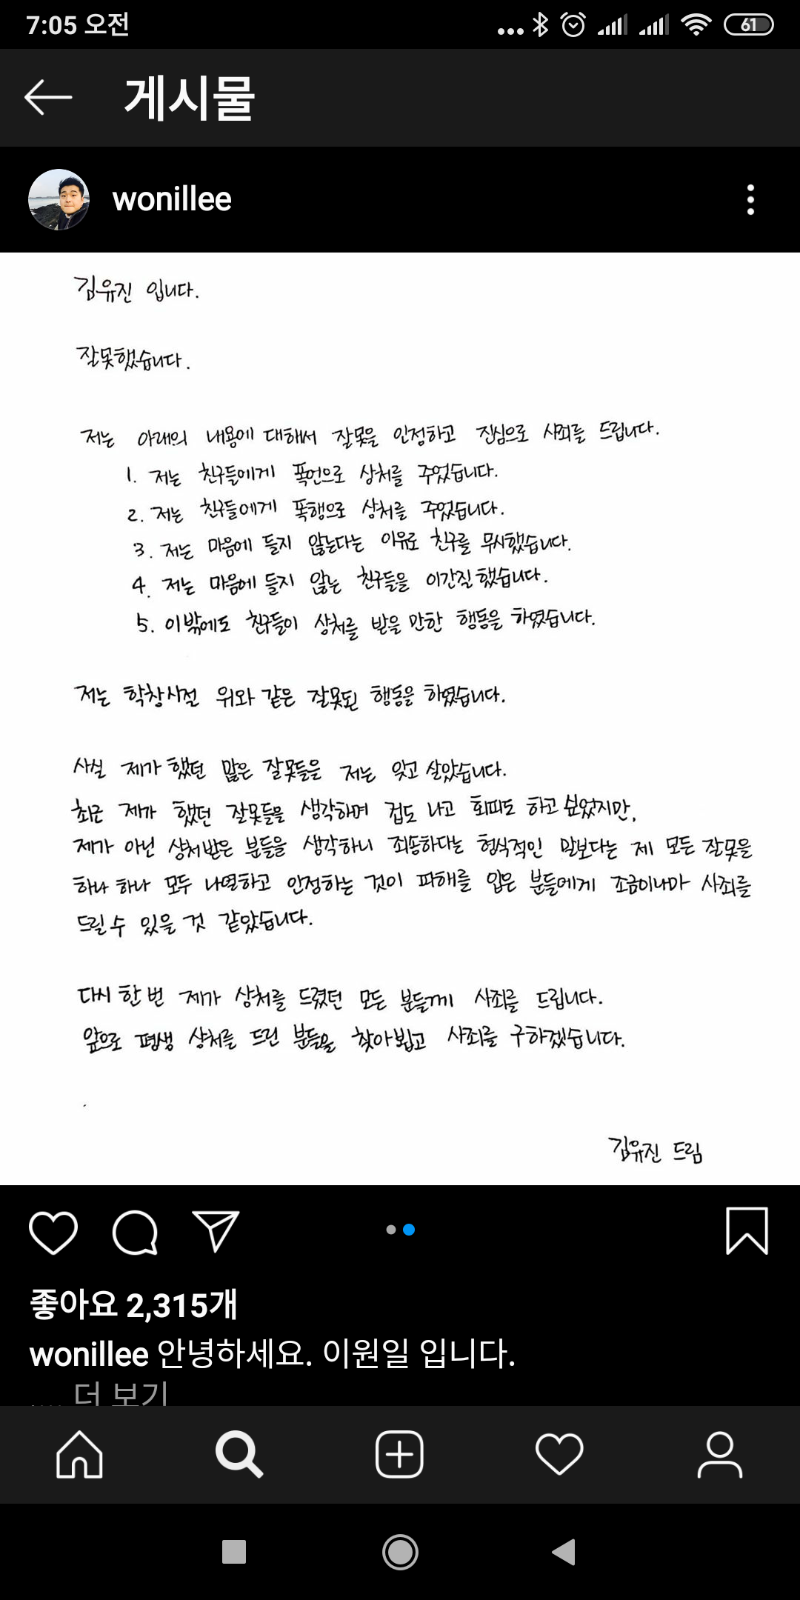 7:05 오전
61
게시물
wonillee
김유진 입니다.
잘못했습니다.
저는 아래의 내용에 대해서 잘못을 인정하고 진심으로 사죄를 드립니다.
1. 저는 친구들에게 폭언으로 상처를 주었습니다.
2. 저는 친구들에게 폭행으로 상처를 주었습니다.
3. 저는 마음에 들지 않는다는 이유로 친구를 무시했습니다.
4. 저는 마음에 들지 않는 친구들을 이간질했습니다.
5. 이밖에도 친구들이 상처를 받을 만한 행동을 하였습니다.
저는 학창시절 위와 같은 잘못된 행동을 하였습니다.
사실 제가 했던 많은 잘못들을 저는 잊고 살았습니다.
최근 제가 했던 잘못들을 생각하며 겁도 나고 회피도 하고 싶었지만,
제가 아닌 상처받은 분들을 생각하니 죄송하다는 형식적인 말보다는 제 모든 잘못을
하나 하나 모두 나열하고 인정하는 것이 피해를 입은 분들에게 조금이나마 사죄를
드릴수 있을 것 같았습니다.
다시 한 번 제가 상처를 드렸던 모든 분들께 사죄를 드립니다.
앞으로 평생 상처를 드린 분들을 찾아뵙고 사죄를 구하겠습니다.
김유진 드림
좋아요 2,315개
wonillee 안녕하세요. 이원일 입니다.
.... 더 보기